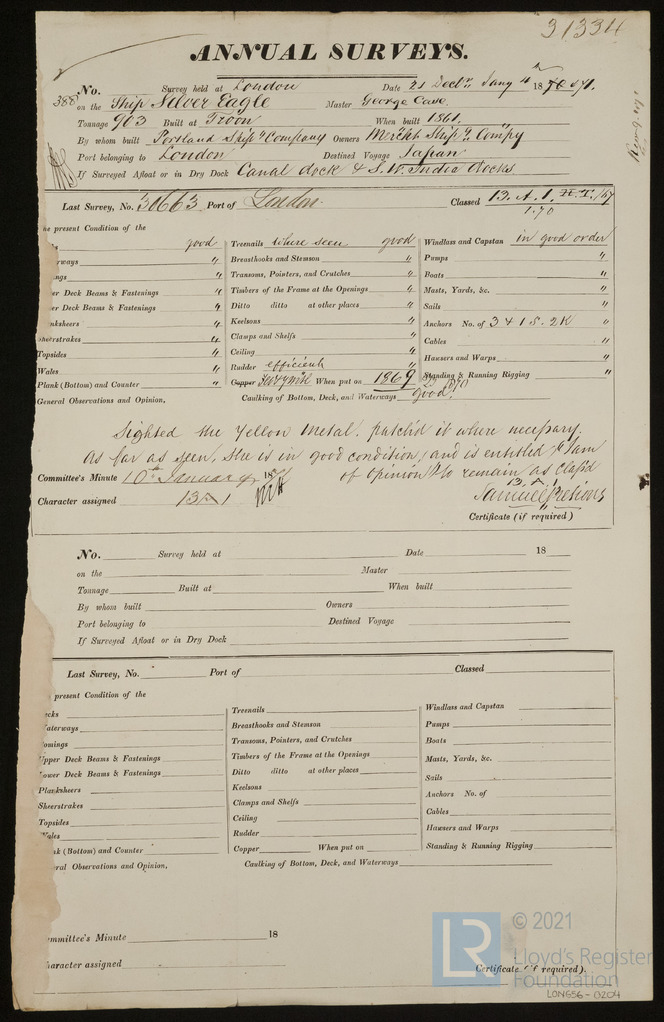 31334
ANNUAL SURVEYS.
No. 388 Survey held at London Date 21 Decbr. Jany 4th 1870 & 71.
on the Ship Silver Eagle Master George Case.
Tonnage 903 Built at Troon When built 1861.
By whom built Portland Shipg Company Owners Merchts Shipg Compy
Port belonging to London Destined Voyage Japan
If Surveyed Afloat or in Dry Dock Canal dock & S. W. India docks
Last Survey, No. 30663 Port of London. Classed 13. A. 1.
1.70
he present Condition of the
good
erways "
ings "
er Deck Beams & Fastenings "
er Deck Beams & Fastenings "
nksheers "
heerstrakes "
Topsides "
Wales "
Plank (Bottom) and Counter "
General Observations and Opinion,
Treenails where seen good
Breasthooks and Stemson "
Transoms, Pointers, and Crutches "
Timbers of the Frame at the Openings "
Ditto ditto at other places "
Keelsons "
Clamps and Shelfs "
Ceiling "
Rudder efficient
Copper When put on 1869
Caulking of Bottom, Deck, and Waterways good.
Windlass and Capstan in good order
Pumps "
Boats "
Masts, Yards, &c. "
Sails "
Anchors No. of 3 & 1 S. 2K "
Cables "
Hawsers and Warps "
Standing & Running Rigging "
Sighted the Yellow Metal, patch'd it where necessary.
As far as seen, she is in good condition, and is entitled I am
of Opinion to remain as class'd
13. A. 1.
Committee's Minute 10th January 18
Character assigned 13 A 1
Samuel Pretious
Certificate (if required)
No. Survey held at Date 18
on the Master
Tonnage Built at When built
By whom built Owners
Port belonging to Destined Voyage
If Surveyed Afloat or in Dry Dock
Last Survey, No. Port of Classed
present Condition of the
ecks
Waterways
omings
Upper Deck Beams & Fastenings
ower Deck Beams & Fastenings
Planksheers
Sheerstrakes
Topsides
Wales
nk (Bottom) and Counter
eral Observations and Opinion,
Treenails
Breasthooks and Stemson
Transoms, Pointers, and Crutches
Timbers of the Frame at the Openings
Ditto ditto at other places
Keelsons
Clamps and Shelfs
Ceiling
Rudder
Copper When put on
Caulking of Bottom, Deck, and Waterways
Windlass and Capstan
Pumps
Boats
Masts, Yards, &c.
Sails
Anchors No. of
Cables
Hawsers and Warps
Standing & Running Rigging
ommittee's Minute 18
haracter assigned
Certificate (if required).
© 2021
LR
Lloyd's Register
Foundation
LON656-0204